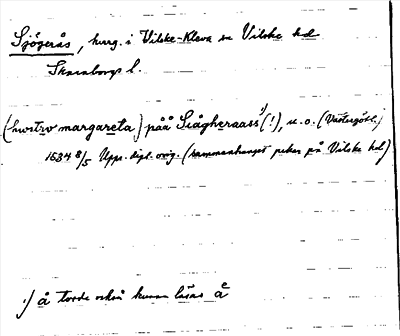 Sjögerås, herrg. i Vilske-Kleva sn Vilske hd
Skaraborgs l.
(hwstrv margareta) påå Siågheraass¹) (!), u. o. (Västergötl.)
1534 8/5 Upps. dipl. orig. (sammanhanget pekar på Vilske hd)
¹) å torde också kunna läsas åͤ